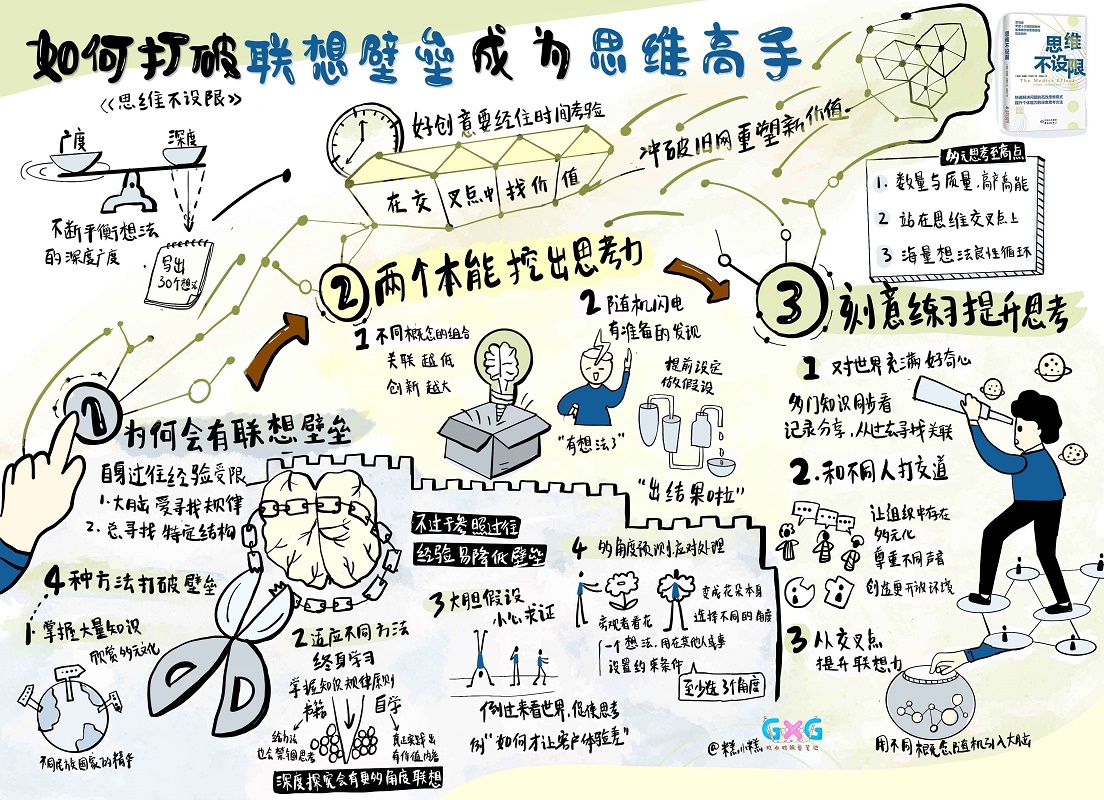 如何打破联想壁垒成为思维高手
《思维不设限》
思维
不设限
The Medici Effect
广度
深度
不断平衡想法
的深度广度
写出
30个想法
好创意要经住时间考验
在交叉点中找价值
冲破旧网重塑新价值
多元思考至高点
1. 数量与质量,高产高能
2 站在思维交叉点上
3 海量想法良性循环
1
为何会有联想壁垒
自身过往经验受限
1.大脑爱寻找规律
2.总寻找特定结构
4种方法打破壁垒
1.掌握大量知识
欣赏多元文化
不同民族国家的精华
2适应不同方法
终身学习
掌握知识规律原则
书籍
自学
给办法
也会禁锢思考
真正实践出
有价值内容
深度探究会有更多角度联想
不过于参照过往
经验易降低壁垒
3大胆假设
小心求证
倒过来看世界,促使思考
例"如何才让客户体验差"
4 多角度预测,应对处理
旁观者看花
变成花朵本身
选择不同的角度
一个想法,用在其他人或事
设置约束条件
至少在3个角度
2
两个本能挖出思考力
1不同概念的组合
关联越低
创新越大
2随机闪电
有准备的发现
提前设定
做假设
"有想法了"
"出结果啦"
3
刻意练习提升思考
1 对世界充满好奇心
多门知识同步看
记录分享,从过去寻找关联
2.和不同人打交道
让组织中存在
多元化
尊重不同声音
创造更开放环境
3从交叉点
提升联想力
用不同概念随机引入大脑
@糕小糕
GXG